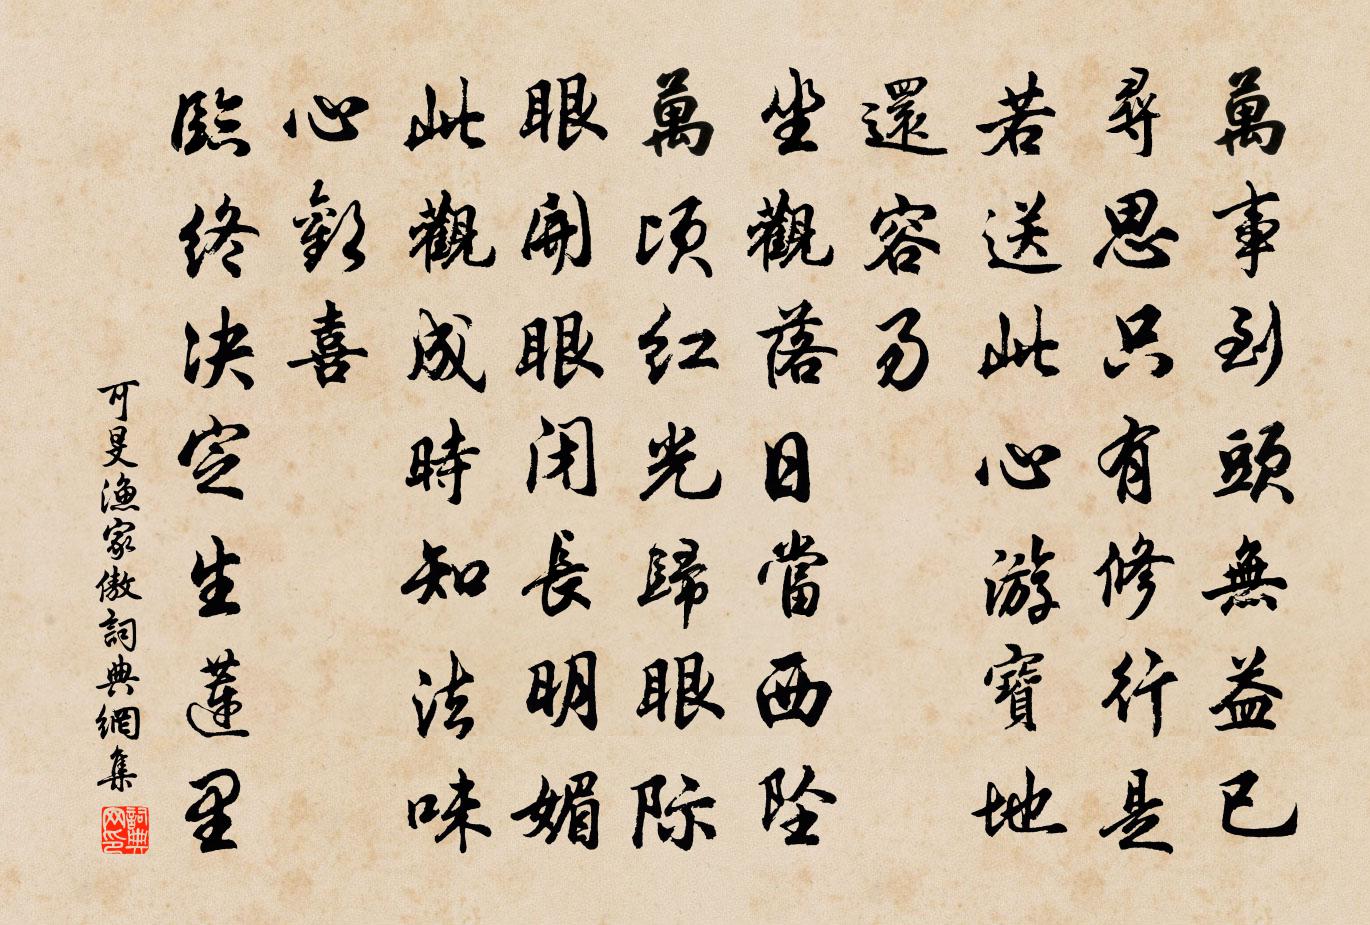 萬事到頭無益己
尋思只有修行是
若送此心游寶地
還容易
坐觀落日當西墜
萬頃紅光歸眼際
眼開眼闭長明媚
此觀成時知法味
心歡喜
臨終決定生蓮里
可旻漁家傲詞典網集
詞典网印